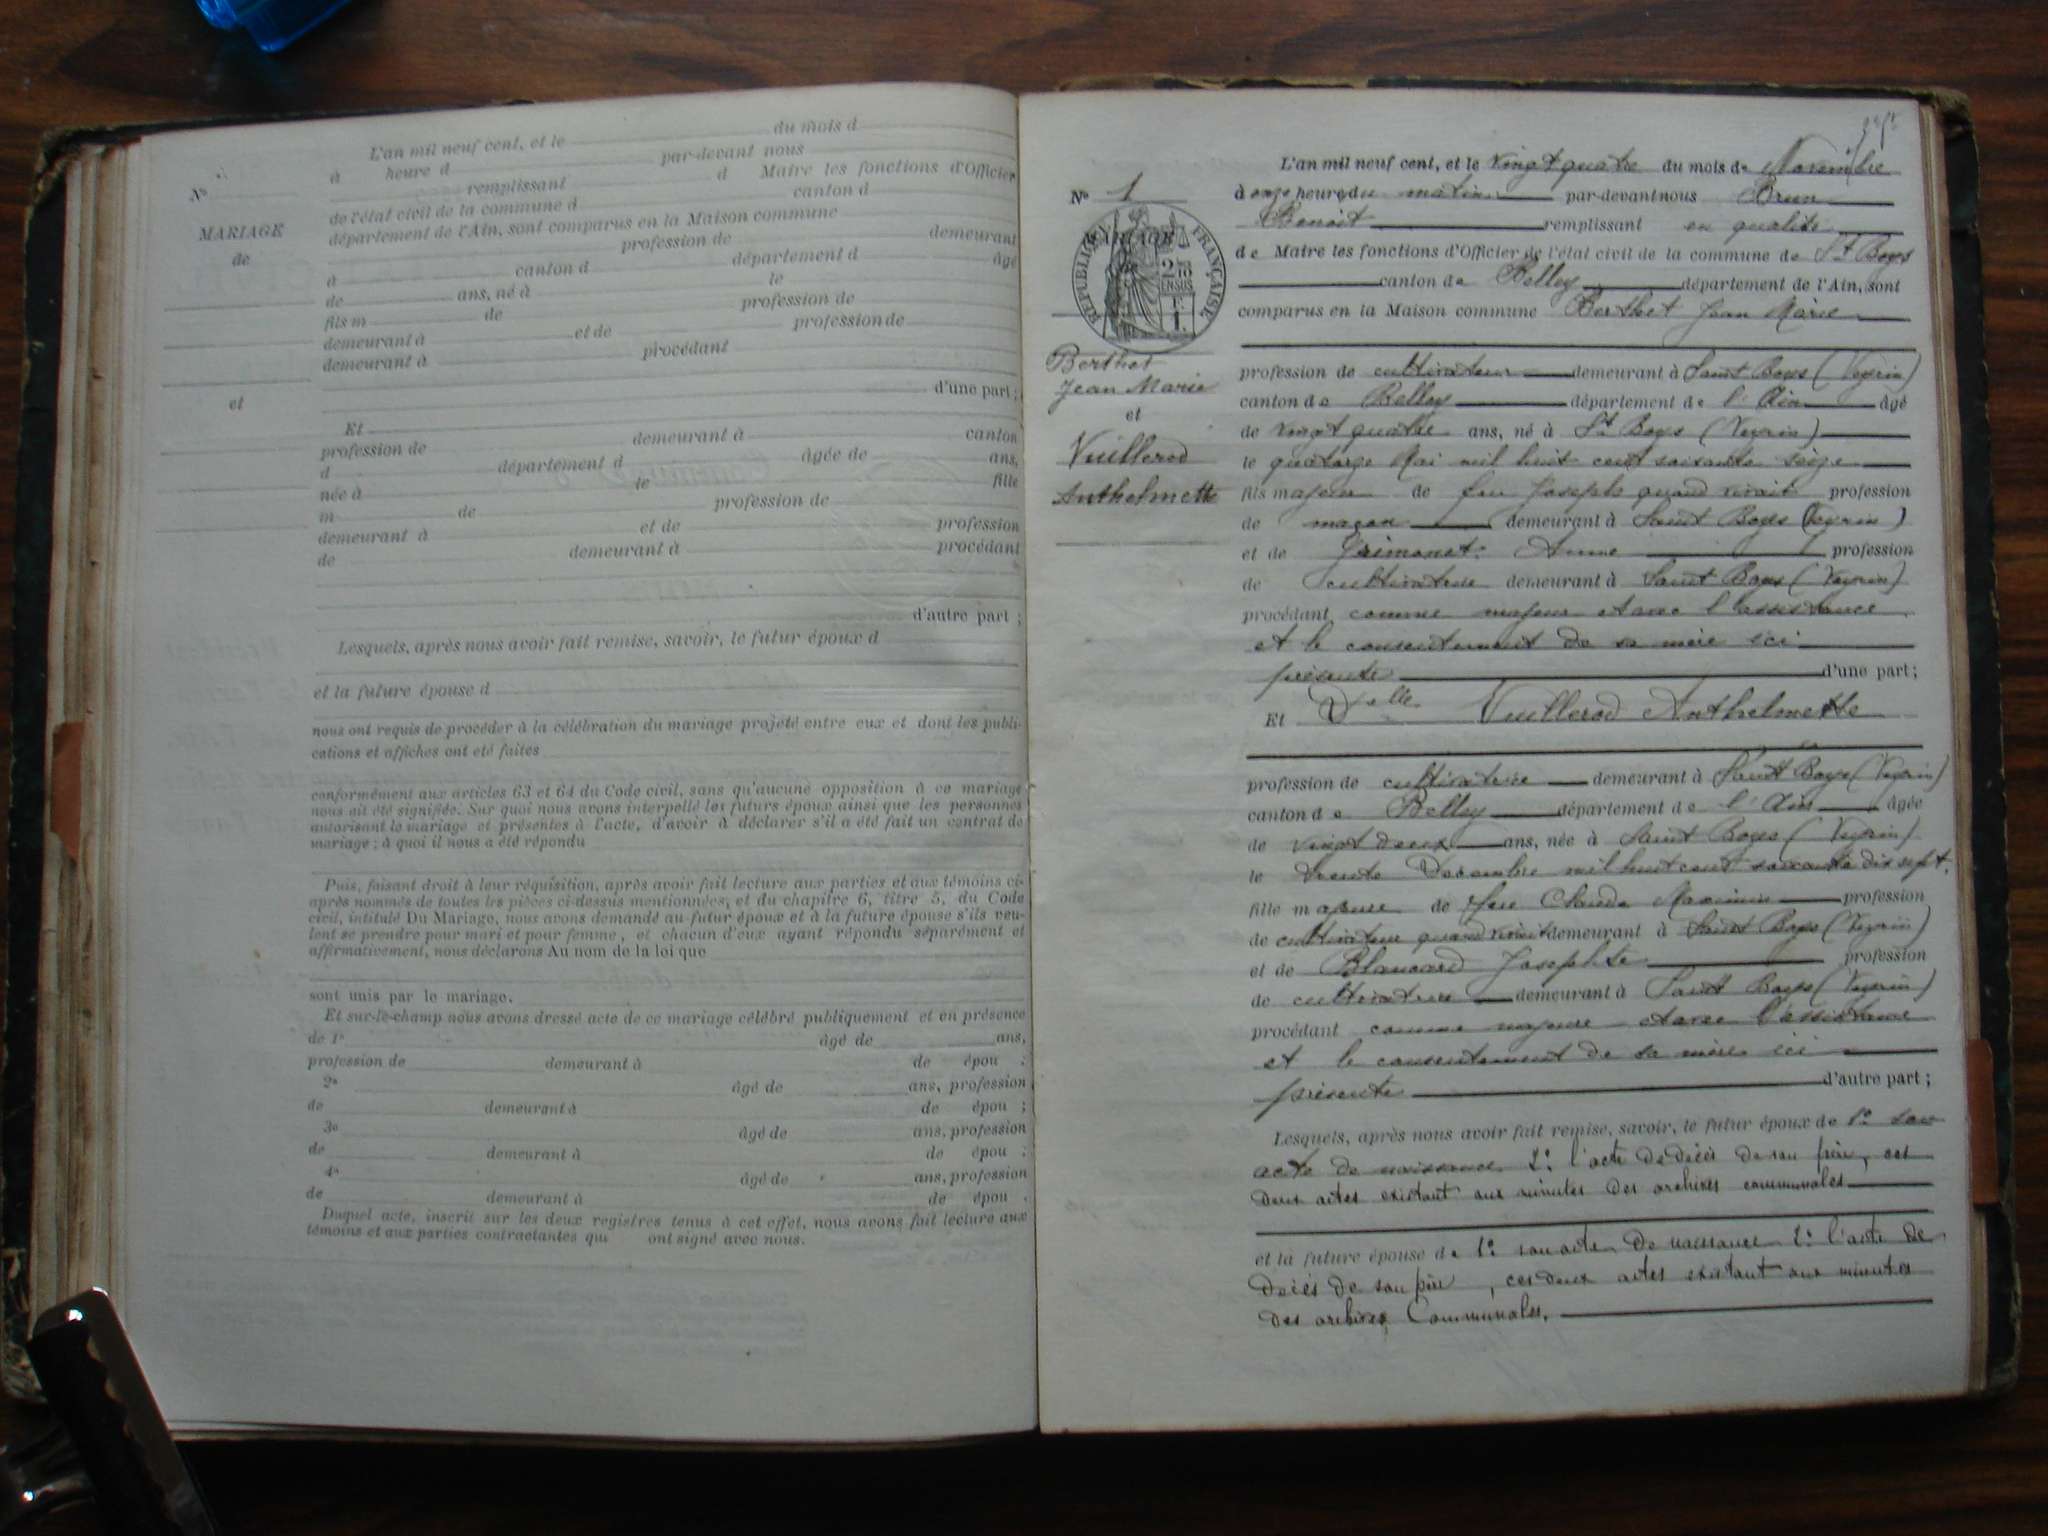 L'an mil neuf cent, et le du mois d
à heure d par-devant nous
remplissant d Maire les fonctions d'Officier
de l'état civil de la commune d canton d
département de l'Ain, sont comparus en la Maison commune
profession de demeurant
à canton d département d âgé
de ans, né à le
fils m de profession de
demeurant à et de profession de
demeurant à procédant
d'une part ;
Et
profession de demeurant à canton
d département d âgée de ans,
née à le fille
m de profession de
demeurant à et de profession
de demeurant à procédant
d'autre part ;
Lesquels, après nous avoir fait remise, savoir, le futur époux d
et la future épouse d
nous ont requis de procéder à la célébration du mariage projeté entre eux et dont les publi-
cations et affiches ont été faites
conformément aux articles 63 et 64 du Code civil, sans qu'aucune opposition à ce mariage
nous ait été signifiée. Sur quoi nous avons interpellé les futurs époux ainsi que les personnes
autorisant le mariage et présentes à l'acte, d'avoir à déclarer s'il a été fait un contrat de
mariage ; à quoi il nous a été répondu
Puis, faisant droit à leur réquisition, après avoir fait lecture aux parties et aux témoins ci-
après nommés de toutes les pièces ci-dessus mentionnées, et du chapitre 6, titre 5, du Code
civil, intitulé Du Mariage, nous avons demandé au futur époux et à la future épouse s'ils veu-
lent se prendre pour mari et pour femme, et chacun d'eux ayant répondu séparément et
affirmativement, nous déclarons Au nom de la loi que
sont unis par le mariage.
Et sur-le-champ nous avons dressé acte de ce mariage célébré publiquement et en présence
de 1° âgé de ans,
profession de demeurant à de épou ;
2° âgé de ans, profession
de demeurant à de épou ;
3° âgé de ans, profession
de demeurant à de épou ;
4° âgé de ans, profession
de demeurant à de épou .
Duquel acte, inscrit sur les deux registres tenus à cet effet, nous avons fait lecture aux
témoins et aux parties contractantes qui ont signé avec nous.
N°
MARIAGE
de
et
N° 1
RÉPUBLIQUE FRANÇAISE
Berthet
Jean Marie
et
Vuillerod
Anthelmette
L'an mil neuf cent, et le vingt quatre du mois de Novembre
à onze heures du matin par-devant nous Brun
Benoit remplissant en qualité
de Maire les fonctions d'Officier de l'état civil de la commune de St Boys
canton de Belley département de l'Ain, sont
comparus en la Maison commune Berthet Jean Marie
profession de cultivateur demeurant à Saint Boys (Veyrin)
canton de Belley département de l'Ain âgé
de vingt quatre ans, né à St Boys (Veyrin)
le quatorze Mai mil huit cent soixante seize
fils majeur de feu Joseph quand vivait profession
de maçon demeurant à Saint Boys (Veyrin)
et de Grimonet Anne profession
de cultivatrice demeurant à Saint Boys (Veyrin)
procédant comme majeur et avec l'assistance
et le consentement de sa mère ici
présente d'une part ;
Et Delle Vuillerod Anthelmette
profession de cultivatrice demeurant à Saint Boys (Veyrin)
canton de Belley département de l'Ain âgée
de vingt deux ans, née à Saint Boys (Veyrin)
le trente Decembre mil huit cent soixante dix sept.
fille majeure de feu Claude Maximin profession
de cultivateur quand vivait demeurant à Saint Boys (Veyrin)
et de Blancard Josephte profession
de cultivatrice demeurant à Saint Boys (Veyrin)
procédant comme majeure et avec l'assistance
et le consentement de sa mère ici
présente d'autre part ;
Lesquels, après nous avoir fait remise, savoir, le futur époux de 1° son
acte de naissance 2° l'acte de décès de son père, ces
deux actes existant aux minutes des archives communales
et la future épouse de 1° son acte de naissance 2° l'acte de
décès de son père, ces deux actes existant aux minutes
des archives Communales.